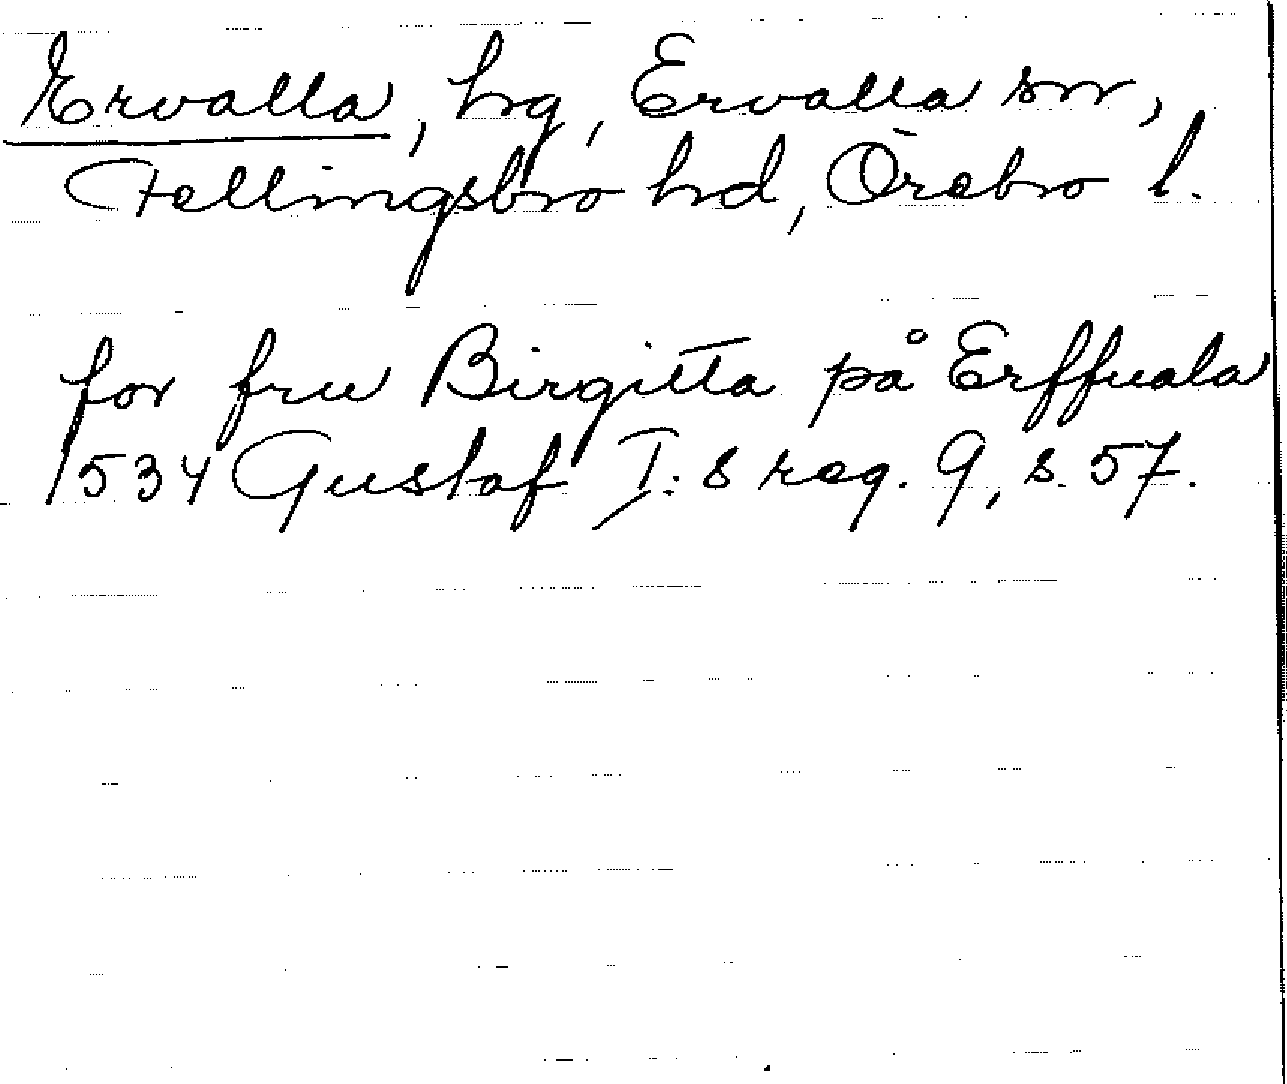 Ervalla, hg, Ervalla sn,
Fellingsbro hd, Örebro l.
for fru Birgitta på Erffuala
1534 Gustaf I:s reg. 9, s. 57.